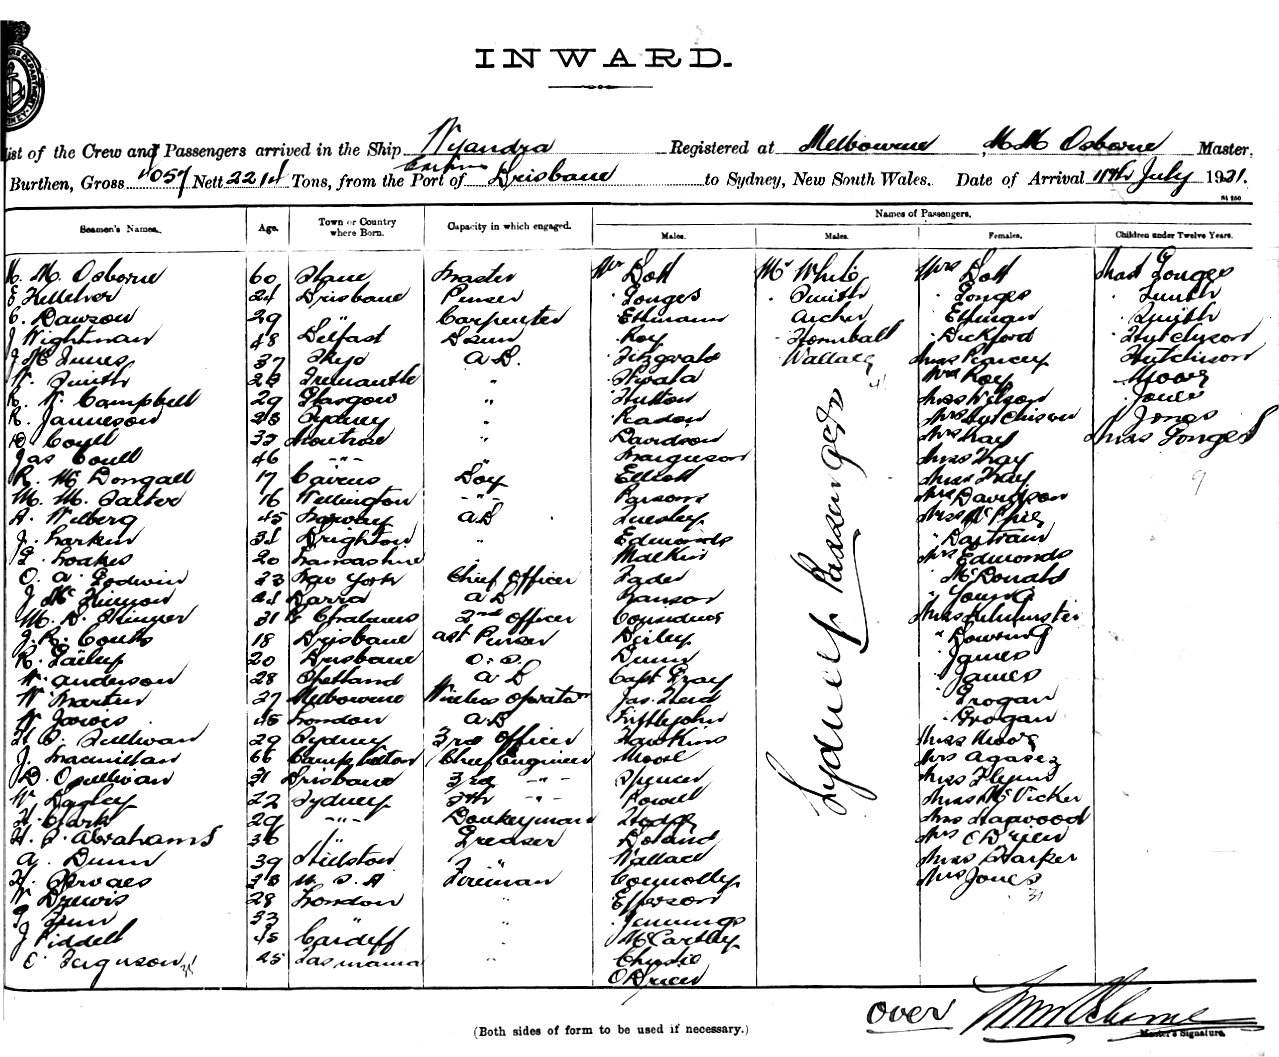 INWARD.
List of the Crew and Passengers arrived in the Ship Wyandra Registered at Melbourne , M M Osborne Master,
Burthen, Gross 4057 Nett 2214 Tons, from the Port of Brisbane to Sydney, New South Wales. Date of Arrival 11th July 1921.
Names of Passengers.
Seamen's Names. Age. Town or Country where Born. Capacity in which engaged. Males. Males. Females. Children under Twelve Years.
M. M. Osborne 60 Master Mr Bott Mr White Mrs Bott Mast Gonges
E Kelleher 24 Brisbane Purser Gonges Smith Gonges Smith
C. Dawson 29 " Carpenter Ethmann Archer Smith
J Wightman 48 Belfast Bsun Roy Hornball Bickford Hutchison
J McInnes 37 Skye A.B. Fitzgerald Wallace Miss Pearcey Hutchison
W. Smith Fremantle " Mrs Roy Moore
R. W. Campbell 29 Glasgow " Hutton Miss Wilson Jones
R. Jamieson Sydney " Readon Mrs Hutchison Jones
D Coull Montrose " Davidson Mrs Hay Miss Gonges
Jas Coull 46 -"- " Miss Hay
R. McDougall 17 Cairns Boy Elliott Miss Hay 9
M. M. Salter 16 Wellington -"- Parsons Mrs Davidson
A. Wilberg 45 Norway AB Miss McPhie
J. Larkin Brighton " Edmonds " Bartram
Loakes 20 Lancashire Malkin Mrs Edmonds
O. A. Godwin New York Chief Officer Fader McDonald
J. McKinnon Barra AB Ranson " Young
M. D. Skinner 31 Pt Chalmers 2nd Officer Considine
J. R. Coutts 18 Brisbane ast Purser " Dowsing
R. Bailey 20 Brisbane O.S. Dunn James
W. Anderson 28 Shetland AB Capt Gray James
W Martin 27 Melbourne Wireless Operator Jas. Grogan
W Jarvis 45 London AB Littlejohn Grogan
Sullivan 29 Sydney 3rd Officer Hawkins Miss Moore
J. Macmillan 66 Campbelton Chief Engineer Moore Mrs Agasez
D. Osullivan 31 Brisbane 3rd -"- Spencer Miss Flynn
W. Bagley 22 Sydney 5th -"- Powell Miss McVicker
H. Clark 29 -"- Donkeyman Mrs Hapwood
H. S. Abrahams 36 " Greaser Boland Mrs O'Brien
A. Dunn 39 " Wallace Miss Harker
H. Servaes U.S.A Fireman Connolly Mrs Jones
W. Drewis 28 London " Epperson 31
33 " " Jennings
J Piddell 45 Cardiff McCarthy
C. Ferguson 35 Tasmania " Christie
O'Brien
Sydney Passengers
41
over
Master's Signature.
(Both sides of form to be used if necessary.)